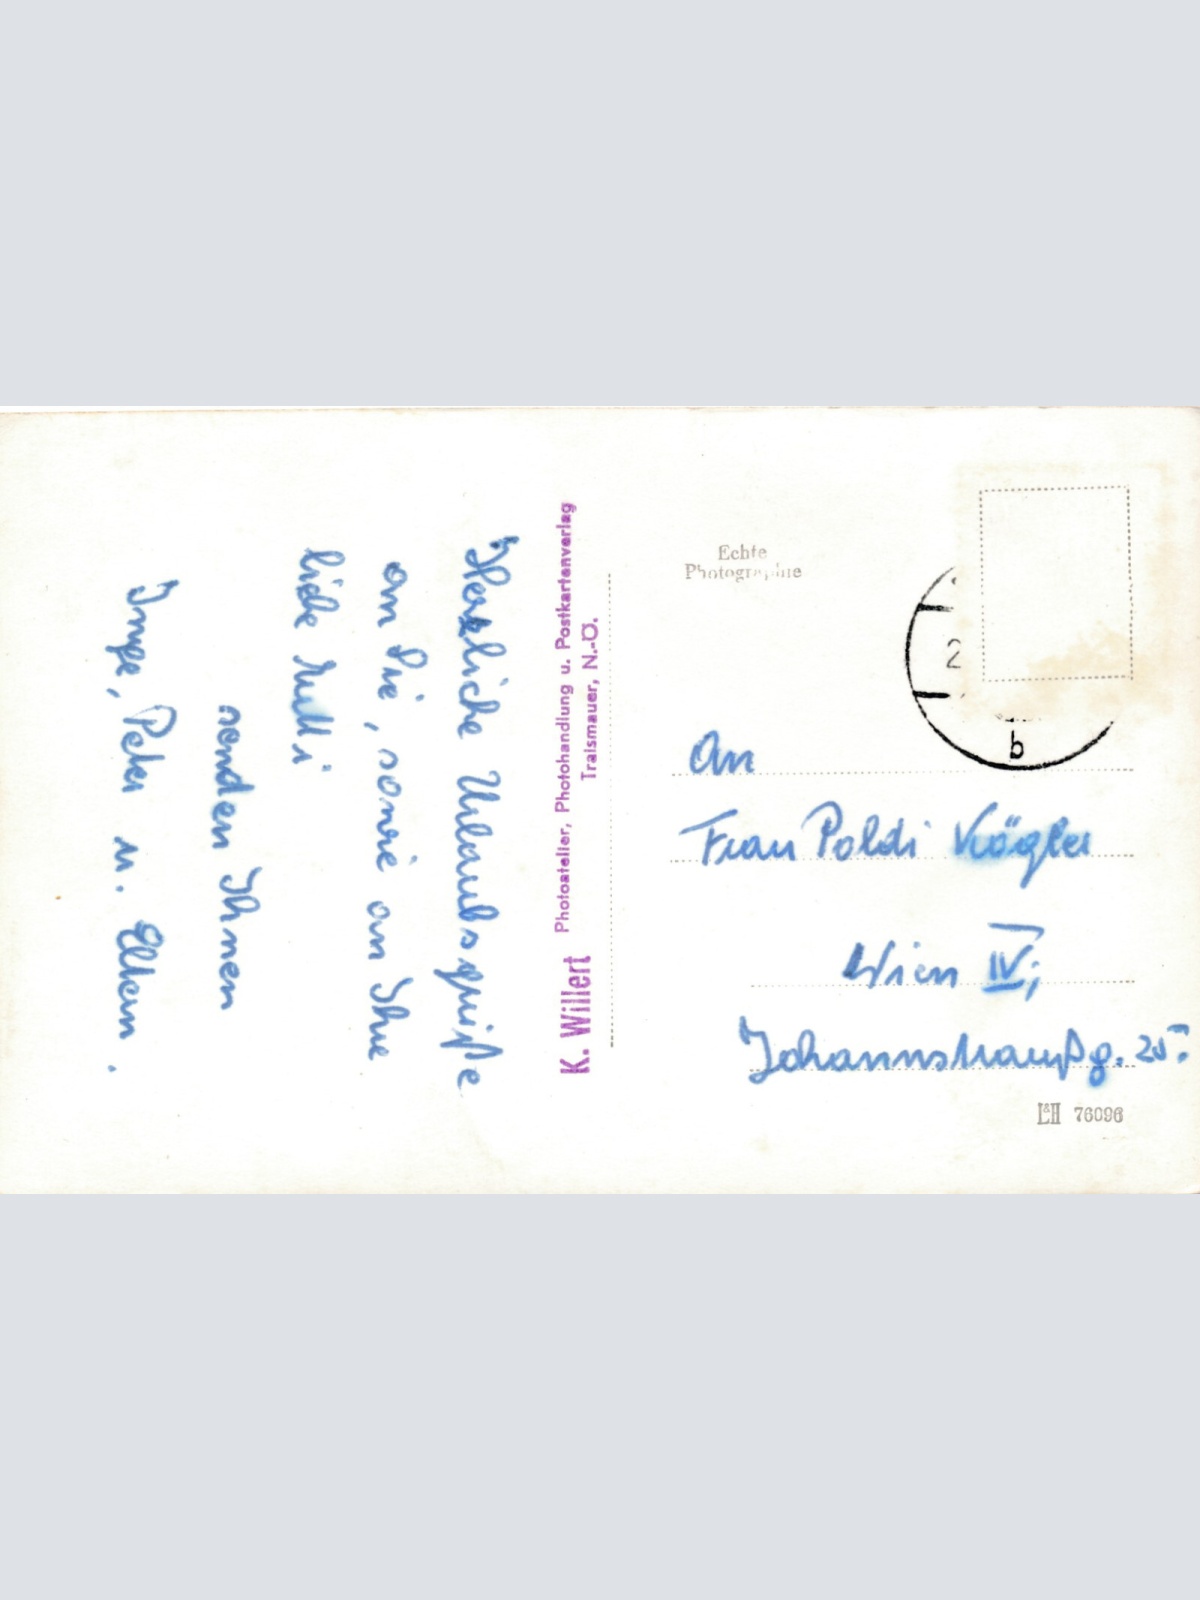 Herzliche Urlaubsgrüße
an Sie, sowie an Ihre
liebe Mutti
senden Ihnen
Inge, Peter u. Eltern.
K. Willert Photoatelier, Photohandlung u. Postkartenverlag
Traismauer, N.-Ö.
Echte
Photographie
2
b
An
Frau Poldi Kögler
Wien IV;
Johannstraußg. 25.
L&H 76096